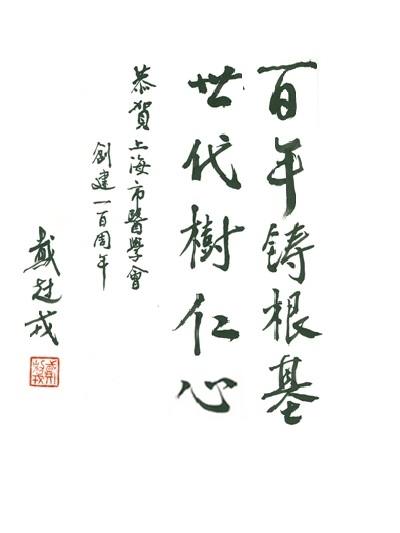 百年铸根基
世代樹仁心
恭賀上海市醫學會
創建一百周年
戴尅戎